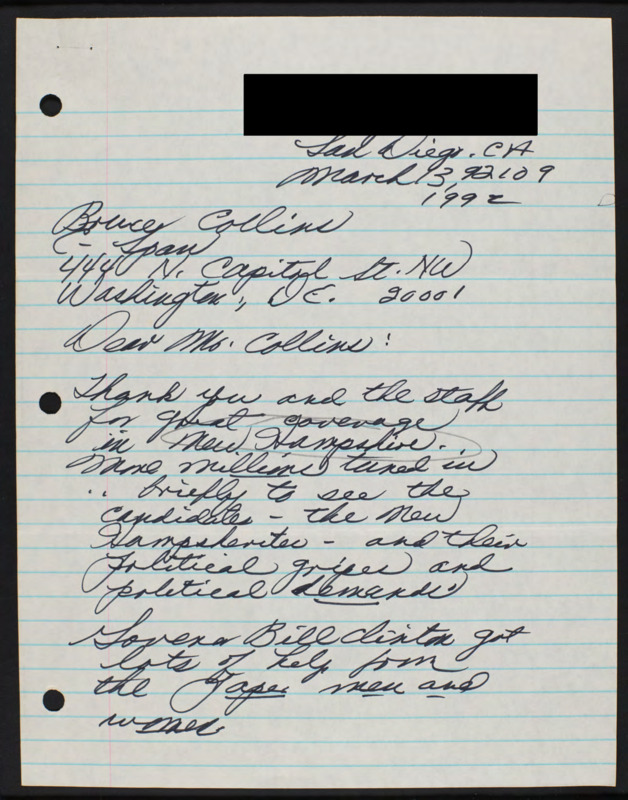 San Diego. CA
March 13, 92109
1992
Bruce Collins
C-Span
444 N. Capitol St. NW
Washington, D.C. 20001
Dear Mr. Collins:
Thank you and the staff
for great coverage
in New Hampshire.
More millions tuned in
.. briefly to see the
candidates - the New
Hampsherites - and their
political gripes and
political demands
Govenor Bill Clinton got
lots of help from
the Tape men and
women